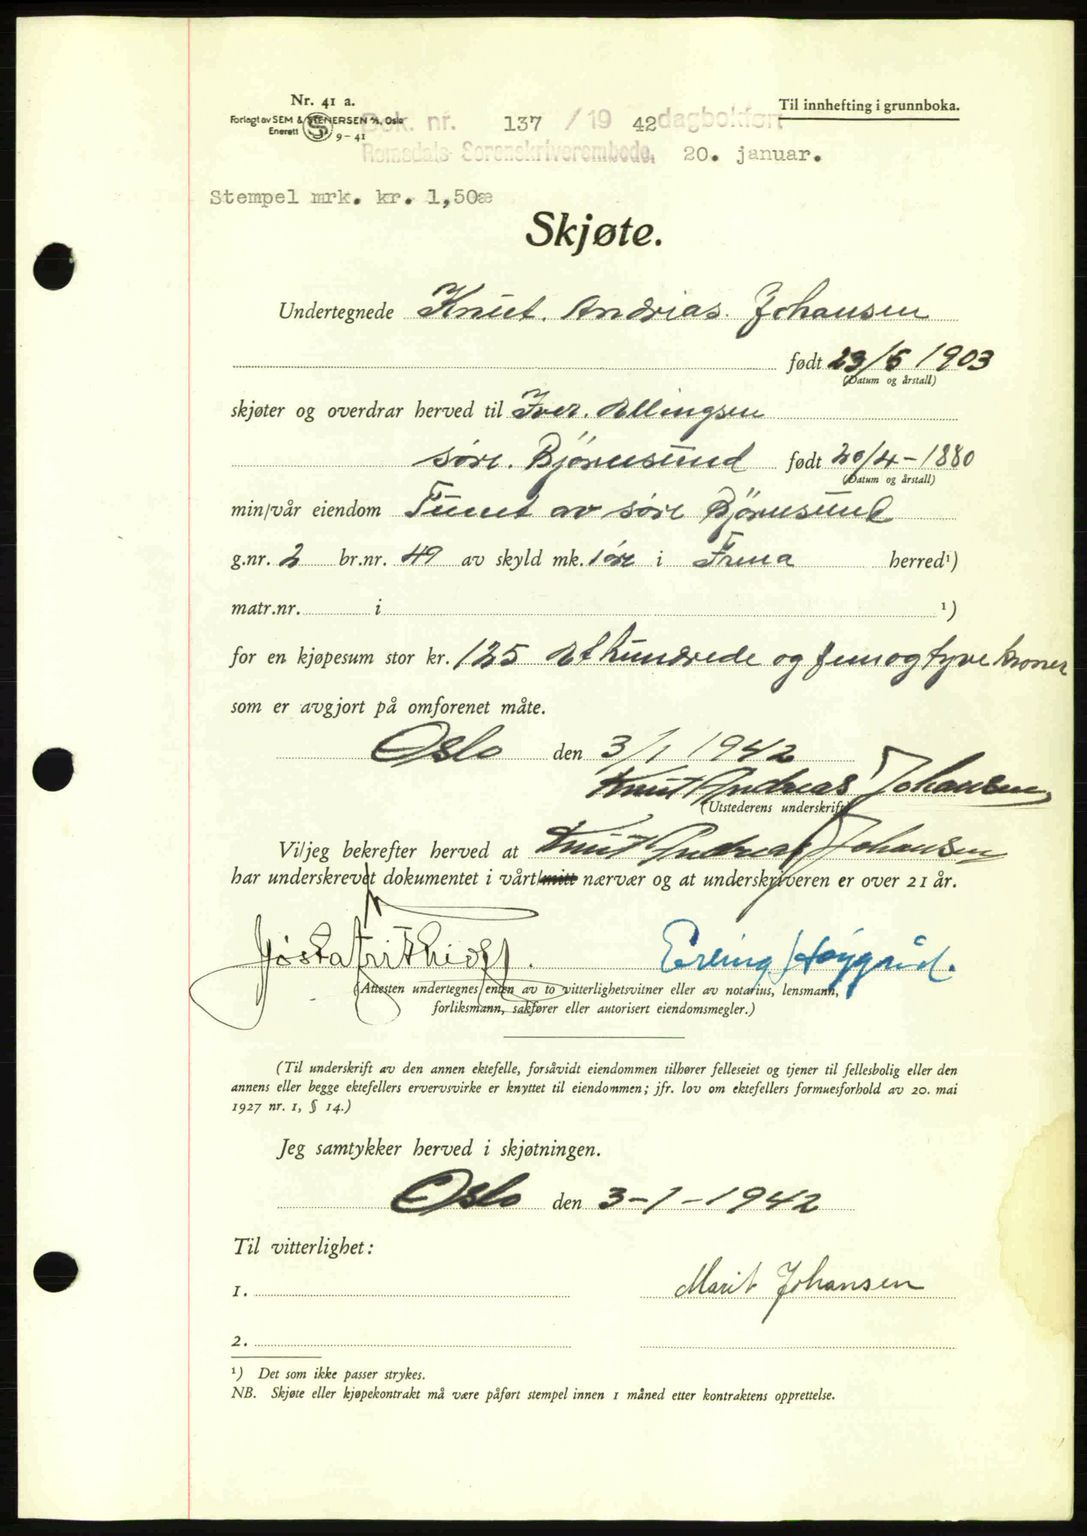 Nr. 41 a.
Forlagt av SEM & STENERSEN A/S, Oslo
Enerett 9-41
Til innhefting i grunnboka.
Dok. nr. 137 / 19 42 dagbokført
Romsdals Sorenskriverembede, 20. januar.
Stempel mrk. kr. 1,50æ
Skjøte.
Undertegnede Knut. Andrias. Johansen
født 23/5 1903
(Datum og årstall)
skjøter og overdrar herved til Iver. Ellingsen
søre. Bjørnsund født 20/4-1880
(Datum og årstall)
min/vår eiendom Tunet av søre Bjørnsund
g.nr. 2 br.nr. 49 av skyld mk. 1 øre i Frena herred¹)
matr.nr. i ¹)
for en kjøpesum stor kr. 125 Et hundrede og femogtyve kroner
som er avgjort på omforenet måte.
Oslo den 3/1 1942
Knut Andreas Johansen
(Utstederens underskrift)
Vi/jeg bekrefter herved at Knut Andreas Johansen
har underskrevet dokumentet i vårt/mitt nærvær og at underskriveren er over 21 år.
Gösta Frithiof. Erling Høygård.
(Attesten undertegnes enten av to vitterlighetsvitner eller av notarius, lensmann,
forliksmann, sakfører eller autorisert eiendomsmegler.)
(Til underskrift av den annen ektefelle, forsåvidt eiendommen tilhører felleseiet og tjener til fellesbolig eller den
annens eller begge ektefellers ervervsvirke er knyttet til eiendommen; jfr. lov om ektefellers formuesforhold av 20. mai
1927 nr. 1, § 14.)
Jeg samtykker herved i skjøtningen.
Oslo den 3-1-1942
Til vitterlighet:
1. Marit Johansen
2.
¹) Det som ikke passer strykes.
NB. Skjøte eller kjøpekontrakt må være påført stempel innen 1 måned etter kontraktens opprettelse.